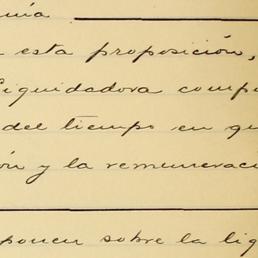 esta proposición,
iquidadora compo
del tiempo en qu
ón y la remunerac
ponen sobre la liq